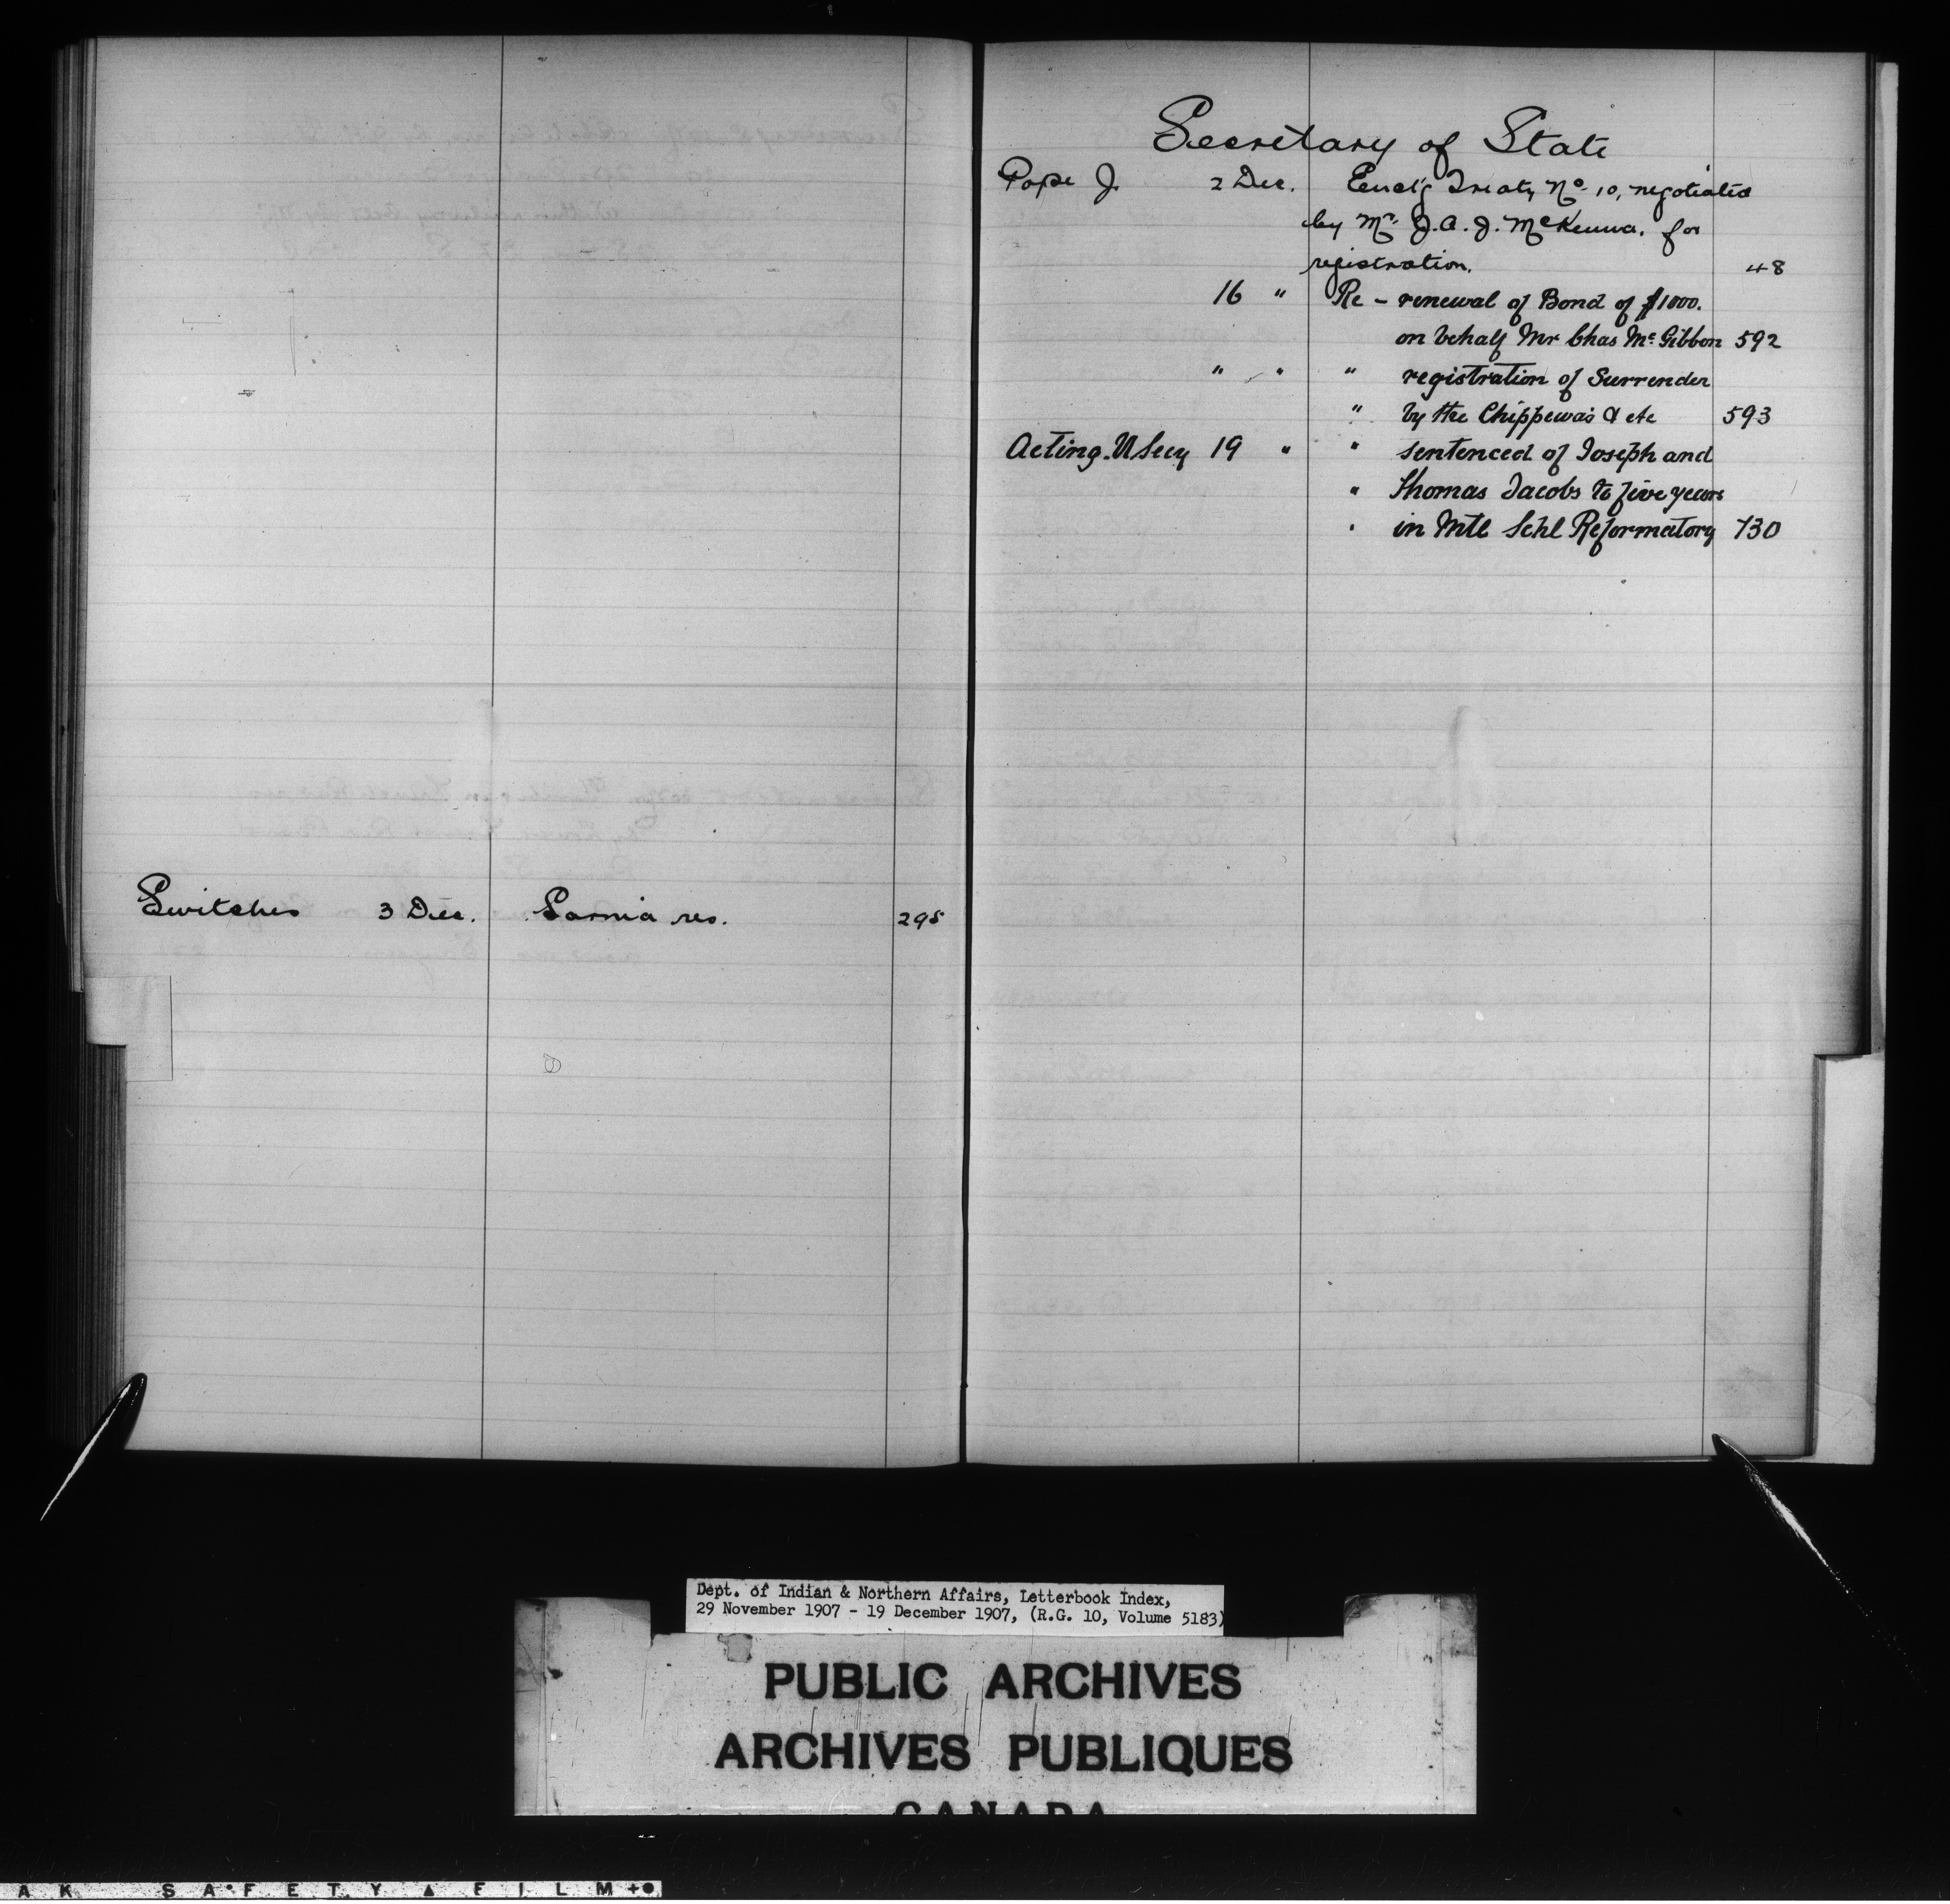 Switches 3 Dec. Sarnia res. 295
Secretary of State
Pope J. 2 Dec. Encl'g Treaty No 10, negotiated
by Mr. J.A.J. McKenna, for
registration. 48
16 " Re - renewal of Bond of $1000.
on behalf Mr Chas McGibbon 592
" " " registration of Surrender
" by the Chippewas & etc 593
Acting U Secy 19 " " sentenced of Joseph and
" Thomas Jacobs to five years
" in Mtl Schl Reformatory 730
Dept. of Indian & Northern Affairs, Letterbook Index,
29 November 1907 - 19 December 1907, (R.G. 10, Volume 5183)
PUBLIC ARCHIVES
ARCHIVES PUBLIQUES
CANADA
A K SAFETY ▲ FILM +●